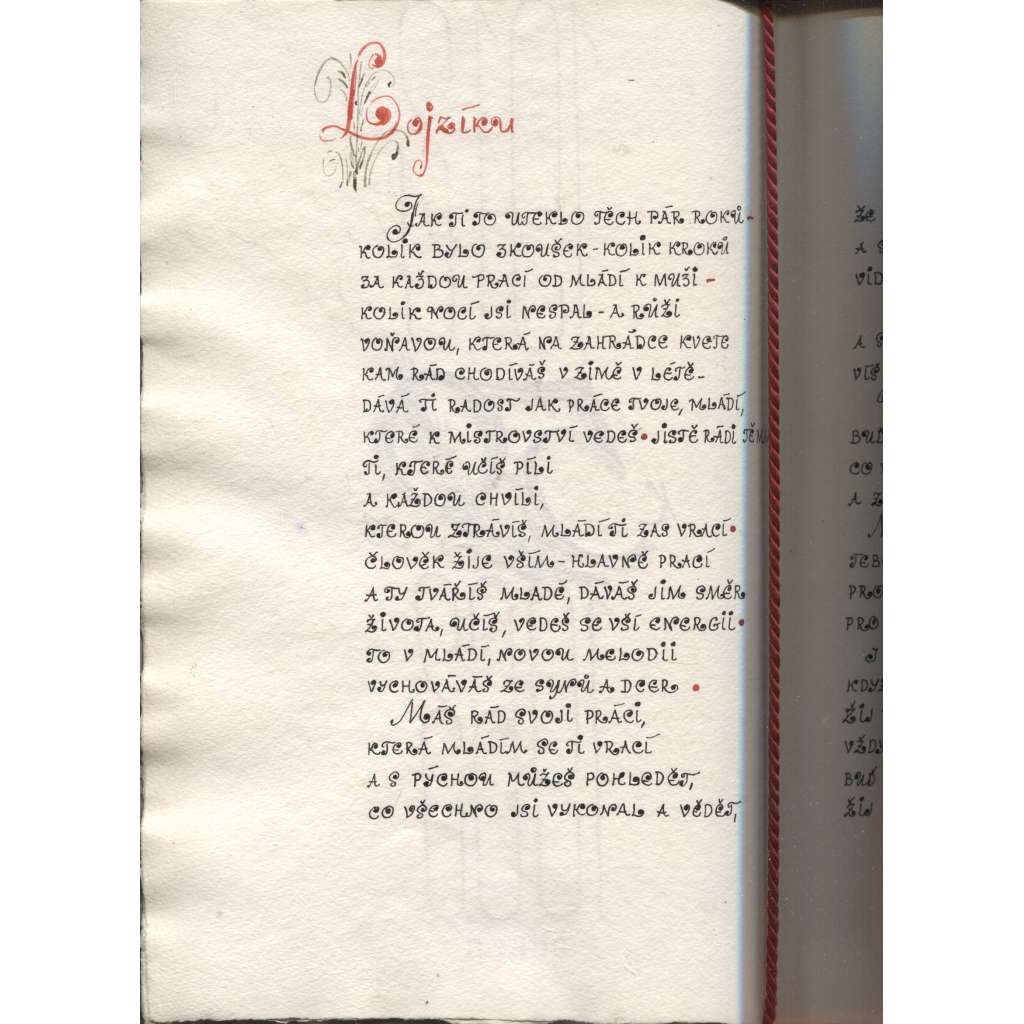 Lojzíku
Jak ti to uteklo těch pár roků-
kolik bylo zkoušek - kolik kroků
za každou prací od mládí k muži -
kolik nocí jsi nespal - a růži
voňavou, která na zahrádce kvete
kam rád chodíváš v zimě v létě-
dává ti radost jak práce tvoje, mládí,
které k mistrovství vedeš. Jistě rádi tě
ti, které učíš píli
a každou chvíli,
kterou ztrávíš, mládí ti zas vrací.
Člověk žije vším - hlavně prací
a ty tváříš mladé, dáváš jim směr
života, učíš, vedeš se vší energii.
to v mládí, novou melodii
vychováváš ze synů a dcer.
Máš rád svoji práci,
která mládím se ti vrací
a s pýchou můžeš pohledět,
co všechno jsi vykonal a vědět,
že
a
víd
a
víš
buď
co
a z
teb
pro
pro
J
kdy
žij
vždy
buď
žij